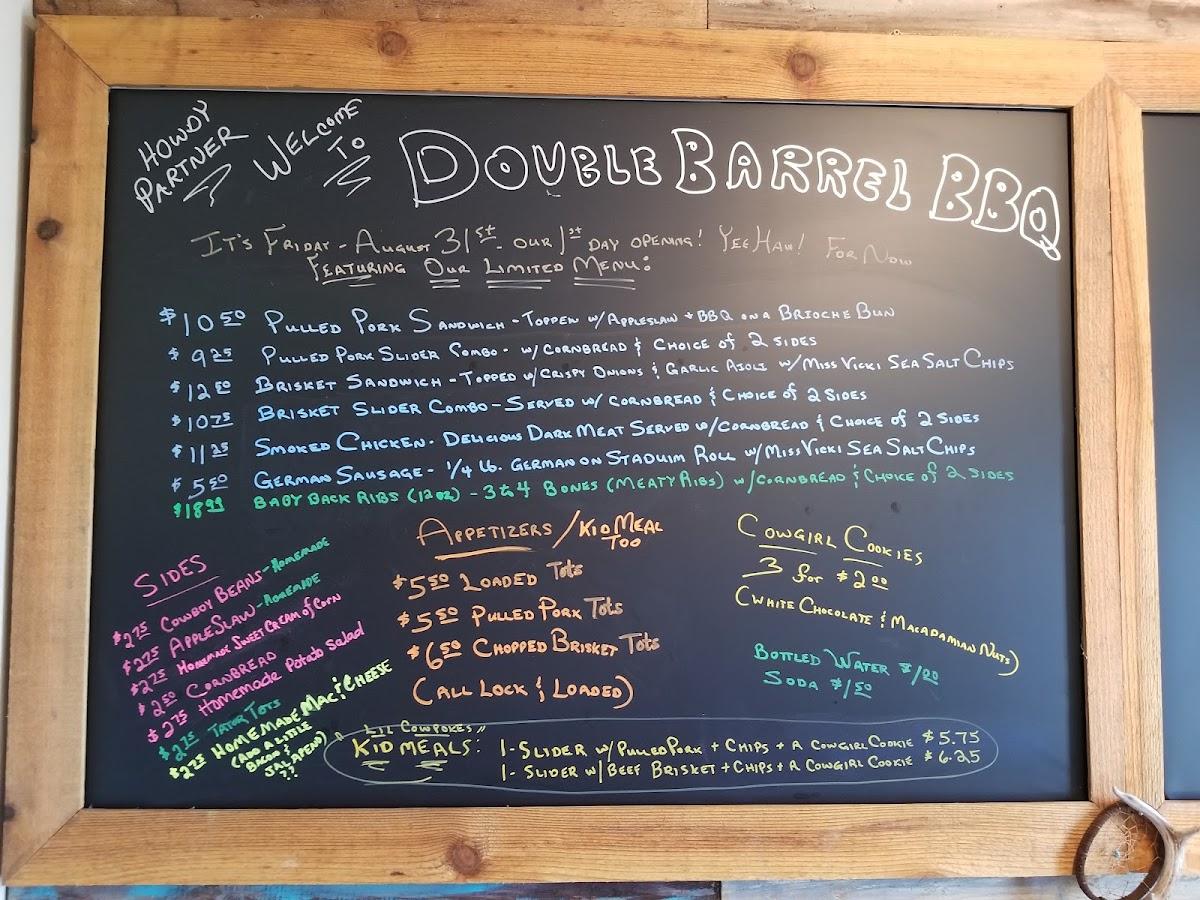 HOWDY
PARTNER
WELCOME
TO
DOUBLE BARREL BBQ
IT'S FRIDAY - AUGUST 31st - OUR 1st DAY OPENING! YEE HAW! FOR NOW
FEATURING OUR LIMITED MENU:
$10 50 PULLED PORK SANDWICH - TOPPEN W/APPLESLAW + BBQ ON A BRIOCHE BUN
$9 25 PULLED PORK SLIDER COMBO - W/CORNBREAD & CHOICE OF 2 SIDES
$12 50 BRISKET SANDWICH - TOPPED W/CRISPY ONIONS & GARLIC AIOLI W/MISS VICKI SEA SALT CHIPS
$10 75 BRISKET SLIDER COMBO - SERVED W/ CORNBREAD & CHOICE OF 2 SIDES
$11 25 SMOKED CHICKEN - DELICIOUS DARK MEAT SERVED W/CORNBREAD & CHOICE OF 2 SIDES
$5 50 GERMAN SAUSAGE - 1/4 lb. GERMAN ON STADUIM ROLL W/MISS VICKI SEA SALT CHIPS
$18 99 BABY BACK RIBS (12oz) - 3 to 4 BONES (MEATY RIBS) W/CORNBREAD & CHOICE OF 2 SIDES
SIDES
$2.75 COWBOY BEANS - HOMEMADE
$2.75 APPLESLAW - HOMEMADE
$2.75 HOMEMADE SWEET CREAM OF CORN
$2.50 CORNBREAD
$2.75 HOMEMADE POTATO SALAD
$2.75 TATOR TOTS
$2.75 HOMEMADE MAC & CHEESE
(ADD A LITTLE
BACON &
JALAPENO)
??
APPETIZERS / KID MEAL
TOO
$5 50 LOADED Tots
$5 50 PULLED PORK Tots
$6 50 CHOPPED BRISKET Tots
(ALL LOCK & LOADED)
COWGIRL COOKIES
3 for $2 00
(WHITE CHOCOLATE & MACADAMIAN NUTS)
BOTTLED WATER $1/00
SODA $1/50
LIL COWPOKES"
KID MEALS:
1-SLIDER W/PULLED PORK + CHIPS + A COWGIRL COOKIE $5.75
1-SLIDER W/BEEF BRISKET + CHIPS + A COWGIRL COOKIE $6.25